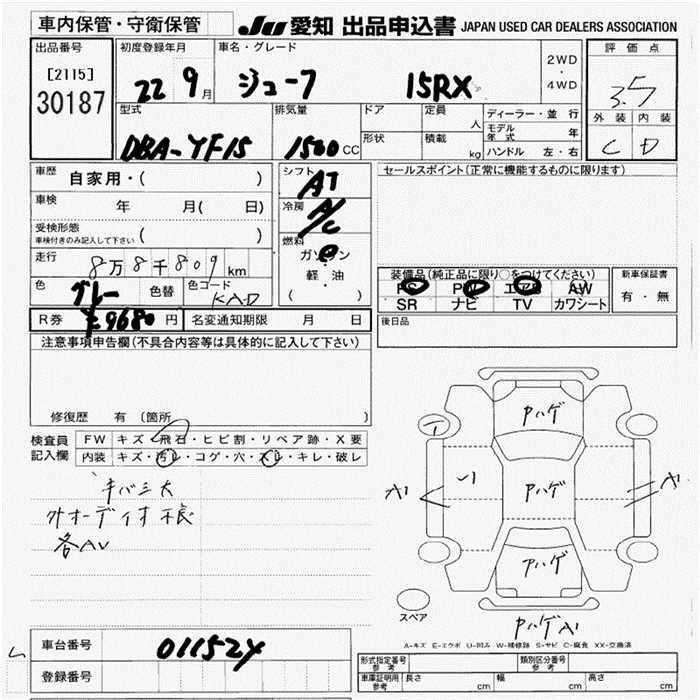 車内保管・守衛保管
JU 愛知 出品申込書 JAPAN USED CAR DEALERS ASSOCIATION
出品番号
[2115]
30187
初度登録年月
22 9月
車名・グレード
ジューク 15RX
2WD
・
4WD
評価点
3.5
外装 内装
C D
型式
DBA-YF15
排気量
1500CC
ドア
形状
定員
人
積載
kg
ディーラー・並行
モデル年式 年
ハンドル 左・右
車歴 自家用・( )
車検 年 月( 日)
受検形態
車検付きのみ記入して下さい ( )
走行 8万8千809km
色 グレー 色替
色コード KAD
シフト AT
冷房 A/C
燃料 ガソリン
・
軽油
( )
R券 ¥9680円 名変通知期限 月 日
セールスポイント(正常に機能するものに限ります)
装備品(純正品に限り○をつけてください)
PS PW エアB AW
SR ナビ TV カワシート
新車保証書
有・無
後日品
注意事項申告欄(不具合内容等は具体的に記入して下さい)
修復歴 有(箇所 )
検査員記入欄
FW キズ・飛石・ヒビ割・リペア跡・X要
内装 キズ・汚レ・コゲ・穴・スレ・キレ・破レ
外オーディオ不良
各AU
Pハゲ
Pハゲ
Pハゲ
A1
A1
PハゲA1
スペア
A-キズ E-エクボ U-凹み W-補修跡 S-サビ C-腐食 XX-交換済
車台番号 011524
登録番号
型式指定番号 参考
類別区分番号 参考
車庫証明用 参考
長さ cm
幅 cm
高さ cm